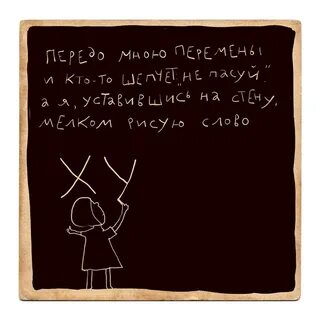 ПЕРЕДО МНОЮ ПЕРЕМЕНЫ
И КТО-ТО ШЕПЧЕТ „НЕ ПАСУЙ".
А Я, УСТАВИВШИСЬ НА СТЕНУ,
МЕЛКОМ РИСУЮ СЛОВО
ХУ